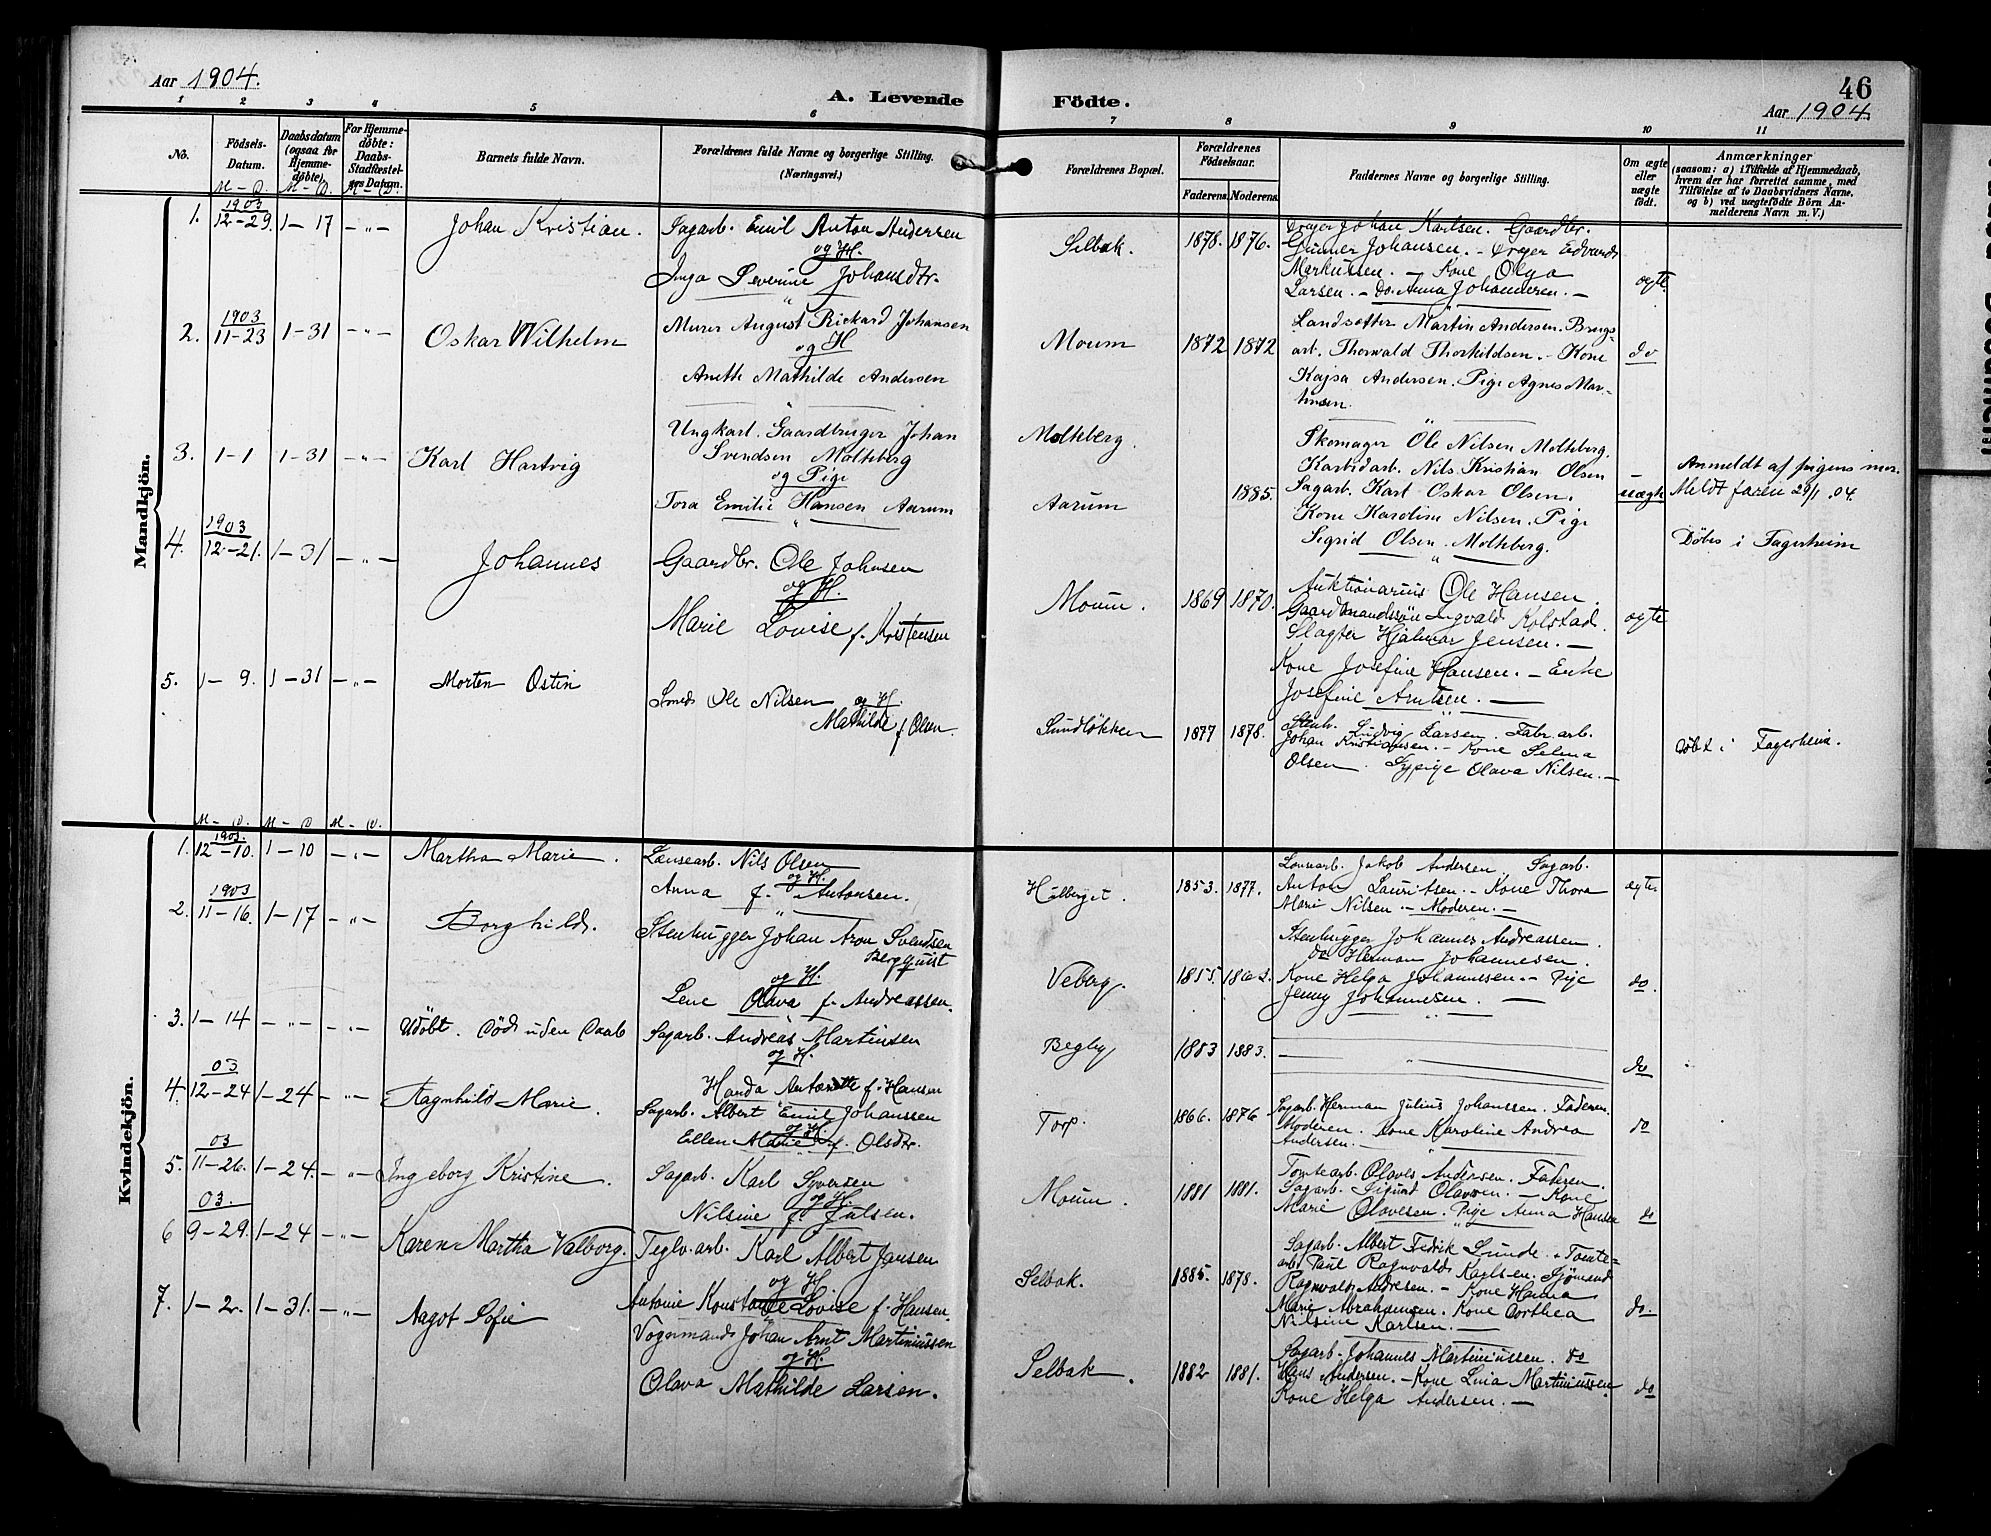 Aar 1904.
A. Levende Födte.
46
Aar 1904.
1 2 3 4 5 6 7 8 9 10 11
No.
Födsels-Datum.
Daabsdatum (ogsaa for Hjemmedöbte)
For Hjemmedöbte: Daabs-Stadfæstelses Datum.
Barnets fulde Navn.
Forældrenes fulde Navne og borgerlige Stilling. (Næringsvei.)
Forældrenes Bopæl.
Forældrenes Födselsaar.
Faderens. Moderens.
Faddernes Navne og borgerlige Stilling.
Om ægte eller uægte födt.
Anmærkninger
(saasom: a) i Tilfælde af Hjemmedaab, hvem der har forrettet samme, med Tilföielse af to Daabsvidners Navne, og b) ved uægtefödte Börn Anmelderens Navn m. V.)
M – D. M – D. M – D.
Mandkjön.
1. 1903 12–29. 1–17 – „ – Johan Kristian.
Sagarb. Emil Anton Andersen
og H.
Inga Severine Johansdtr.
Selbak. 1878. 1876.
Dreyer Johan Karlsen. Gaardbr.
Gunner Johansen. – Dreyer Edvard
Markussen. – Kone Olga
Larsen. – do. Anna Johannesen. –
ægte
2. 1903 11–23 1–31 – „ – Oskar Wilhelm
Murer August Rickard Johansen
og H
Anette Mathilde Andersen
Moum 1872 1872
Landsetter Martin Andersen. Brugs-
arb. Thorvald Thorkildsen. – Kone
Kajsa Andersen. Pige Agnes Mar-
tinsen.
do
3. 1–1 1–31 – „ – Karl Hartvig
Ungkarl. Gaardbruger Johan
Svendsen Moltheberg
og Pige
Tora Emilie Hansen Aarum
Moltheberg.
Aarum 1885.
Skomager Ole Nilsen Moltheberg.
Karbidarb. Nils Kristian Olsen
Sagarb. Karl Oskar Olsen.
Kone Karoline Nilsen. Pige
Sigrid Olsen. Moltheberg.
uægte
Anmeldt af pigens mor.
Meldt faren 29/1. 04.
Döbt i Fagerheim
4. 1903 12–21. 1–31 – „ – Johannes
Gaardbr. Ole Johnsen
og H.
Marie Lovise f. Kristensen
Moum. 1869 1870.
Auktionarius Ole Hansen.
Gaardmandssön Ingvald Kolstad.
Slagter Hjalmar Jensen. –
Kone Josefine Hansen. – Enke
Josefine Arntsen. –
ægte
5. 1–9. 1–31 – „ – Morten Ostin
Smed Ole Nilsen og H.
Mathilde f. Olsen.
Sundlökken 1877 1878.
Stenh. Ludvig Larsen. Fabr. arb.
Johan Kristiansen. – Kone Selma
Olsen. Sypige Olava Nilsen. –
Döbt i Fagerheim.
M – D. M – D M – D.
Kvindekjön.
1. 1903. 12–10. 1–10 – „ – Martha Marie.
Lænsearb. Nils Olsen
og H.
Anna f. Antonsen.
Hulberget. 1853. 1877.
Lænsearb. Jakob Andersen Sagarb.
Anton Lauritsen. – Kone Thora
Marie Nilsen. – Moderen. –
ægte
2. 1903 11–16. 1–17 – „ – Borghild.
Stenhugger Johan Aron Svendsen
Bergquist
og H.
Lene Olava f. Andreassen.
Veberg. 1855.
Stenhugger Johannes Andreassen.
do Herman Johannesen.
Kone Helga Johannesen. – Pige
Jenny Johannesen. –
do.
3. 1–14 – „ – – „ – Udöbt. Död uden Daab
Sagarb. Andreas Martinsen
og H.
Handa f. Hansen
Begby 1883 1883.
– „
do
4. 03 12–24 1–24 – „ – Ragnhild Marie.
Sagarb. Albert Emil Johanssen
og H.
Ellen Marie f. Olsdtr.
Torp. 1866. 1876
Sagarb. Herman Julius Johanssen. Faderen.
Moderen. Kone Karoline Andrea
Andersen. –
do
5. 03 11–26. 1–24. – „ – Ingeborg Kristine.
Sagarb. Karl Syversen
og H.
Nilsine f. Julsen.
Moum. 1881 1881.
Tomtearb. Olaves Andersen. Faderen.
Sagarb. Sigurd Olavesen. – Kone
Marie Olavesen. Pige Anna Hansen
do
6 03. 9–29. 1–24 – „ – Karen Martha Valborg.
Teglv. arb. Karl Albert Jansen
og H
Antonie Konstance Lovise f. Hansen.
Selbak. 1885. 1878.
Sagarb. Albert Fedrik Lunde. Tomte-
arb Paul Ragnvald Karlsen. Sjömand
Ragnvald Andresen. – Kone Hanna
Marie Abrahamsen. Kone Dorthea
Nilsine Karlsen. –
do.
7. 1–2. 1–31. – „ – Aagot Sofie
Vognmand Johan Arnt Martiniussen
og H.
Olava Mathilde Larsen.
Selbak. 1882 1881.
Sagarb. Johannes Martiniussen. do
Hans Andersen. – Kone Lina Martiniussen
Kone Helga Andersen. –
do